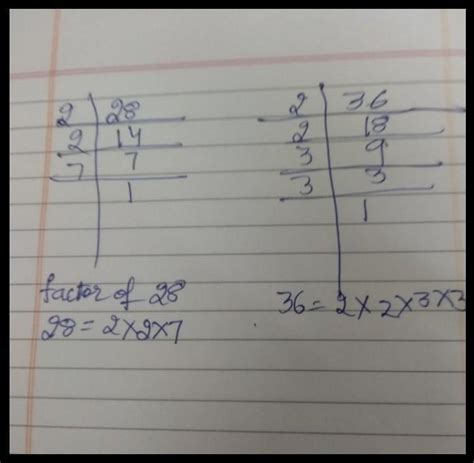 2 | 28
2 | 14
7 | 7
1
factor of 28
28 = 2×2×7
2 | 36
2 | 18
3 | 9
3 | 3
1
36 = 2×2×3×3